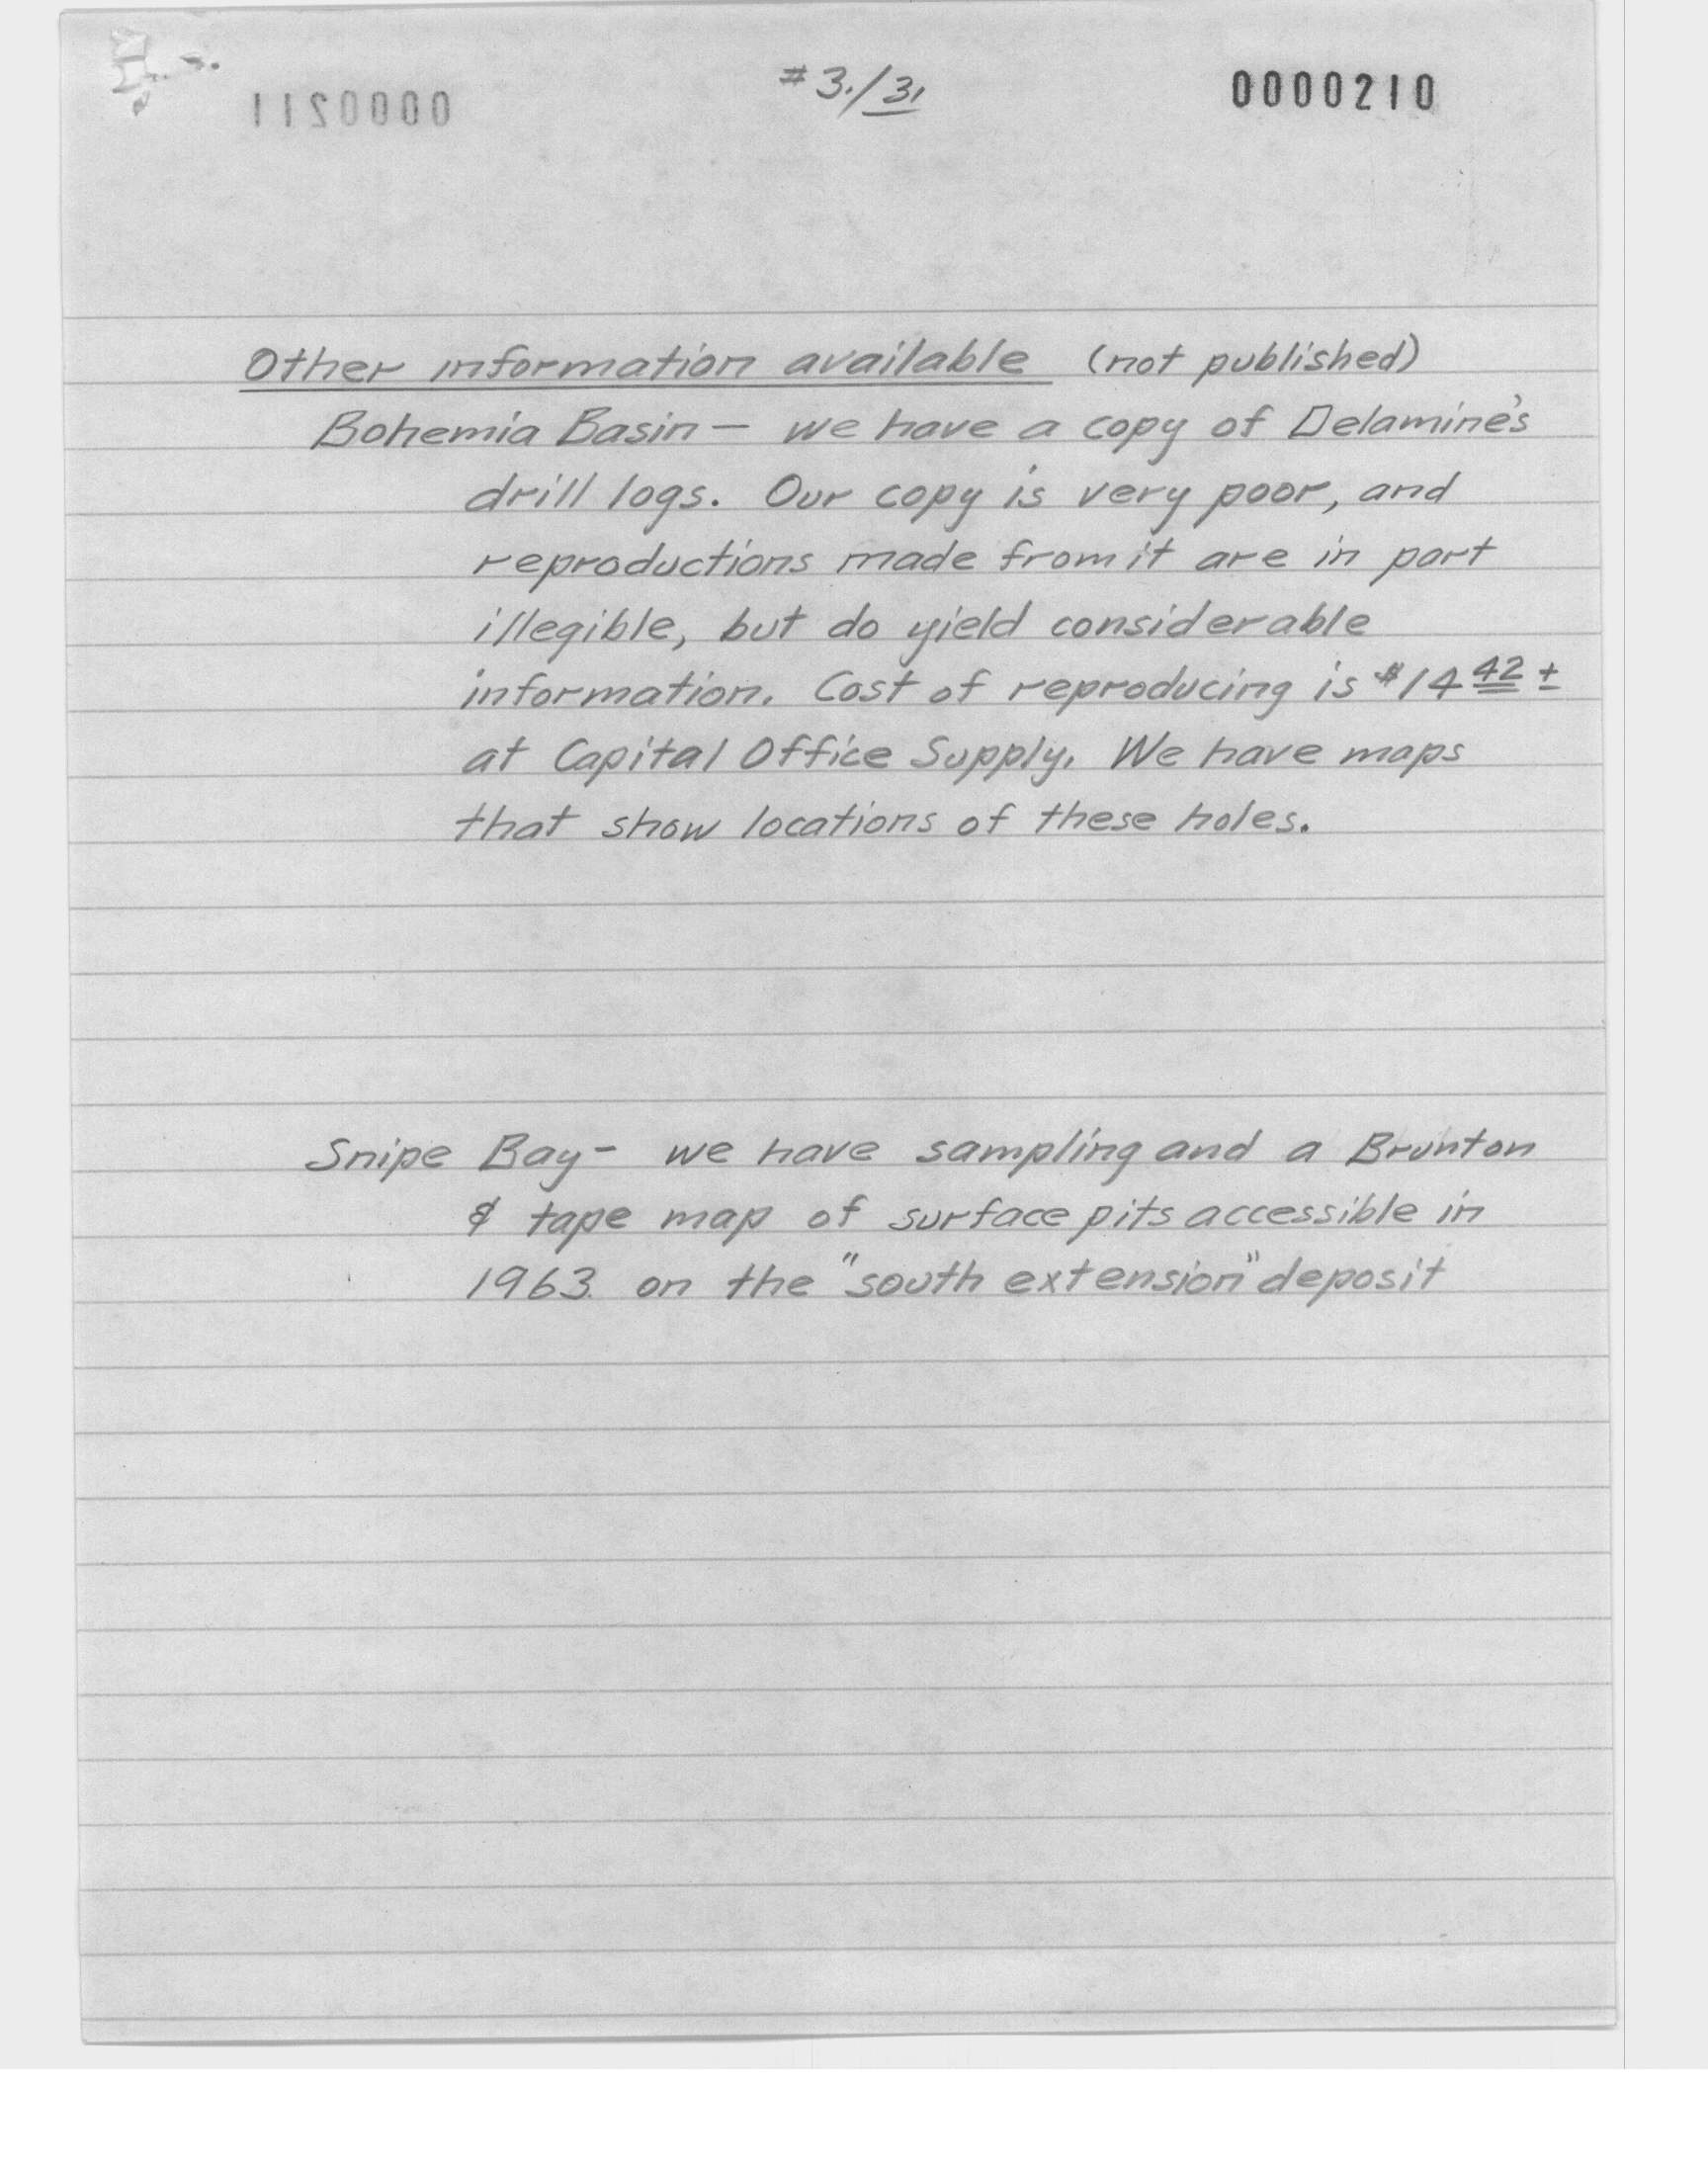 #3./31
0000210
0000211
Other information available (not published)
Bohemia Basin — we have a copy of Delamine's
drill logs. Our copy is very poor, and
reproductions made from it are in part
illegible, but do yield considerable
information. Cost of reproducing is $14 42 ±
at Capital Office Supply. We have maps
that show locations of these holes.
Snipe Bay - we have sampling and a Brunton
& tape map of surface pits accessible in
1963 on the "south extension" deposit